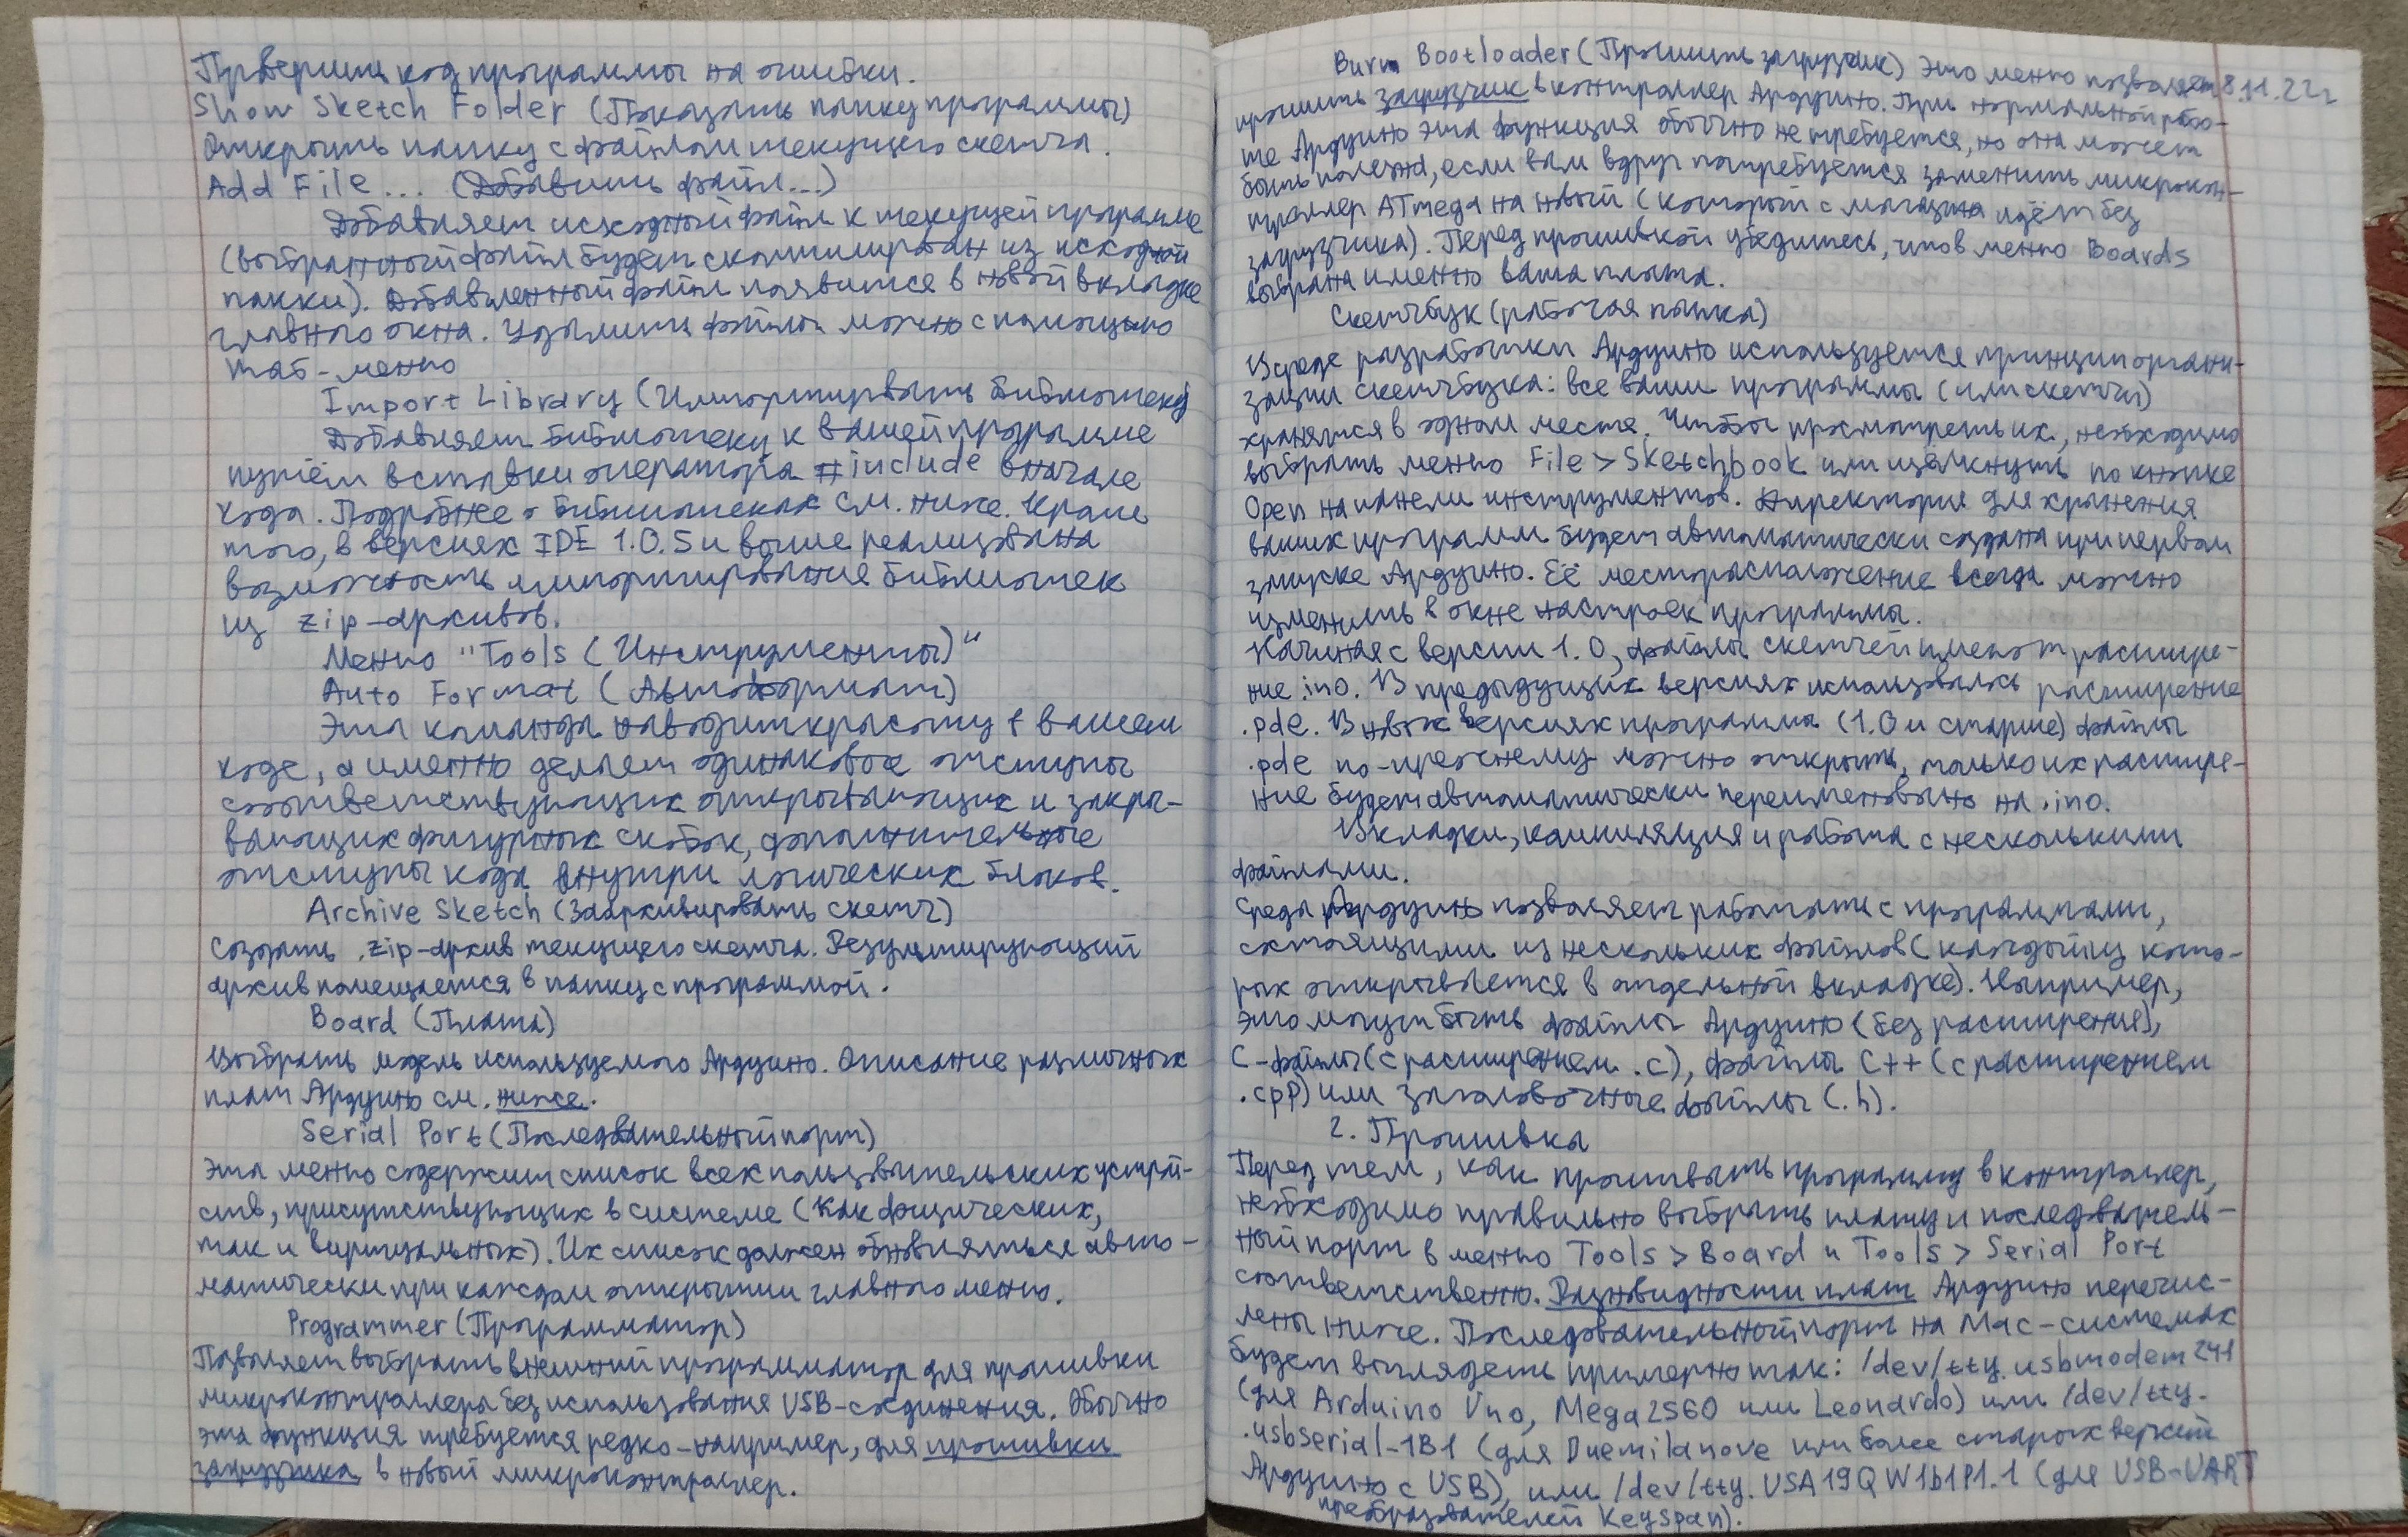 Проверить код программы на ошибки.
Show Sketch Folder (Показать папку программы)
Открыть папку с файлом текущего скетча.
Add File... (Добавить файл...)
Добавляет исходный файл к текущей программе
(выбранный файл будет скопирован из исходной
папки). Добавленный файл появится в новой вкладке
главного окна. Удалить файлы можно с помощью
таб-меню
Import Library (Импортировать библиотеку)
Добавляет библиотеку к вашей программе
путём вставки оператора #include вначале
кода. Подробнее о библиотеках см. ниже. Кроме
того, в версиях IDE 1.0.5 и выше реализована
возможность импортирование библиотек
из zip-архивов.
Меню "Tools (Инструменты)"
Auto Format (Автоформат)
Эта команда наводит красоту в вашем
коде, а именно делает одинаковое отступы
соответствующих открывающих и закры-
вающих фигурных скобок, дополнительные
отступы кода внутри логических блоков.
Archive Sketch (Заархивировать скетч)
Создать .zip-архив текущего скетча. Результирующий
архив помещается в папку с программой.
Board (Плата)
Выбрать модель используемого Ардуино. Описание различных
плат Ардуино см. ниже.
Serial Port (Последовательный порт)
Эта меню содержит список всех пользовательских устрой-
ств, присутствующих в системе (как физических,
так и виртуальных). Их список должен обновляться авто-
матически при каждом открытии главного меню.
Programmer (Программатор)
Позволяет выбрать внешний программатор для прошивки
микроконтроллера без использования USB-соединения. Обычно
эта функция требуется редко-например, для прошивки
загрузчика в новый микроконтроллер.
Burn Bootloader (Прошить загрузчик) Это меню позволяет 8.11.22г
прошить загрузчик в контроллер Ардуино. При нормальной рабо-
те Ардуино эта функция обычно не требуется, но она может
быть полезна, если вам вдруг потребуется заменить микрокон-
троллер ATmega на новый (который с магазина идёт без
загрузчика). Перед прошивкой убедитесь, что в меню Boards
выбрана именно ваша плата.
Скетчбук (рабочая папка)
В среде разработки Ардуино используется принцип органи-
зации скетчбука: все ваши программы (или скетчи)
хранятся в одном месте. Чтобы просмотреть их, необходимо
выбрать меню File > Sketchbook или щёлкнуть по кнопке
Open на панели инструментов. Директория для хранения
ваших программ будет автоматически создана при первом
запуске Ардуино. Её месторасположение всегда можно
изменить в окне настроек программы.
Начиная с версии 1.0, файлы скетчей имеют расшире-
ние .ino. В предыдущих версиях использовалось расширение
.pde. В новых версиях программы (1.0 и старше) файлы
.pde по-прежнему можно открыть, только их расшире-
ние будет автоматически переименовано на .ino.
Вкладки, компиляция и работа с несколькими
файлами.
Среда Ардуино позволяет работать с программами,
состоящими из нескольких файлов (каждый из кото-
рых открывается в отдельной вкладке). Например,
это могут быть файлы Ардуино (без расширения),
C-файлы (с расширением .c), файлы C++ (с расширением
.cpp) или заголовочные файлы (.h).
2. Прошивка
Перед тем, как прошивать программу в контроллер,
необходимо правильно выбрать плату и последователь-
ный порт в меню Tools > Board и Tools > Serial Port
соответственно. Разновидности плат Ардуино перечис-
лены ниже. Последовательный порт на Mac-системах
будет выглядеть примерно так: /dev/tty.usbmodem241
(для Arduino Uno, Mega2560 или Leonardo) или /dev/tty-
.usbserial-1B1 (для Duemilanove или более старых версий
Ардуино с USB), или /dev/tty.USA19QW1b1P1.1 (для USB-UART
преобразователей Keyspan).